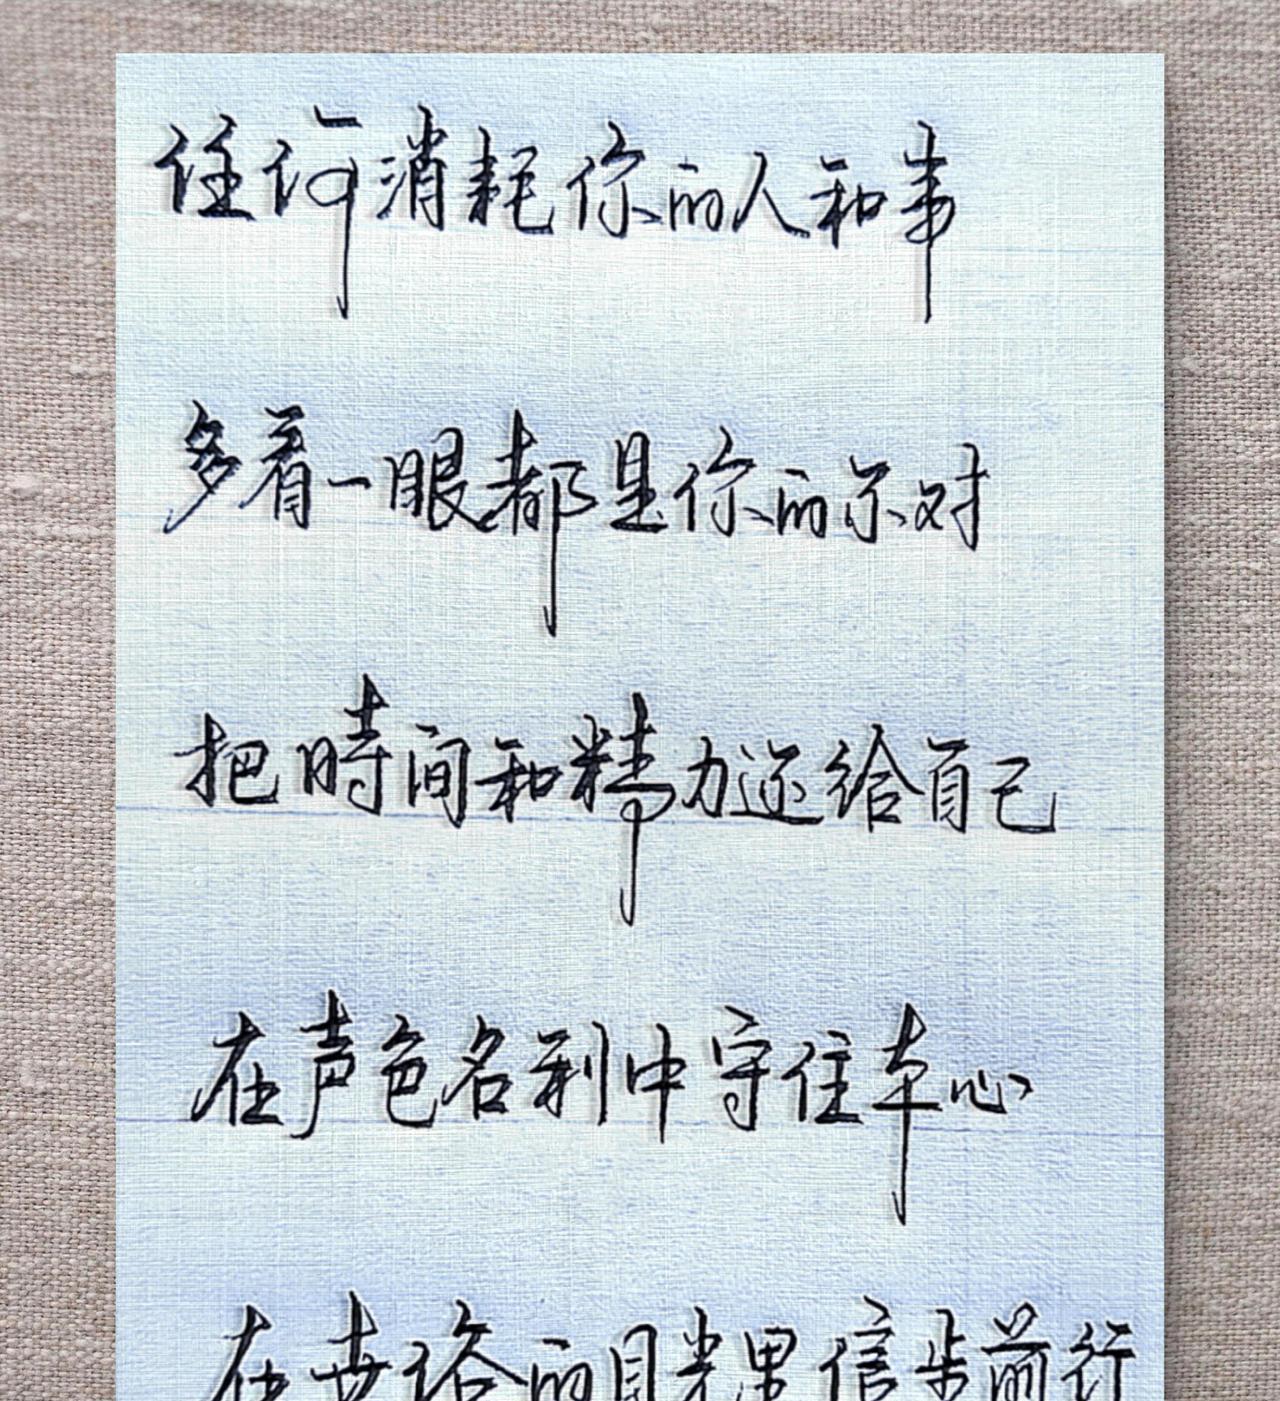 任何消耗你的人和事
多看一眼都是你的不对
把時间和精力还给自己
在声色名利中守住本心
在世俗的目光里信步前行